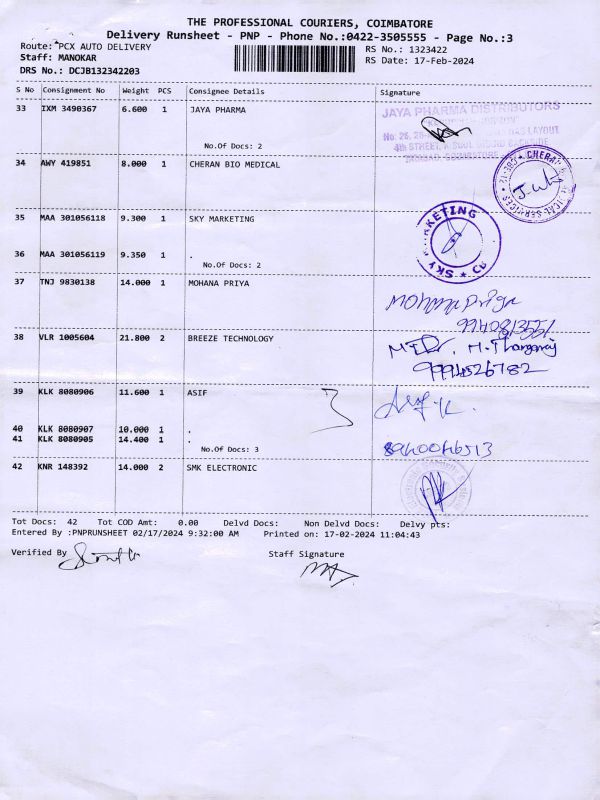 THE PROFESSIONAL COURIERS, COIMBATORE
Delivery Runsheet - PNP - Phone No.:0422-3505555 - Page No.:3
Route: PCX AUTO DELIVERY
RS No.: 1323422
Staff: MANOKAR
RS Date: 17-Feb-2024
DRS No.: DCJB132342203
S No Consignment No Weight PCS Consignee Details Signature
33 IXM 3490367 6.600 1 JAYA PHARMA
JAYA PHARMA DISTRIBUTORS
No.Of Docs: 2
34 AWY 419851 8.000 1 CHERAN BIO MEDICAL
35 MAA 301056118 9.300 1 SKY MARKETING
36 MAA 301056119 9.350 1 .
No.Of Docs: 2
37 TNJ 9830138 14.000 1 MOHANA PRIYA
Mohana Priya
9940813551
38 VLR 1005604 21.800 2 BREEZE TECHNOLOGY
9994526782
39 KLK 8080906 11.600 1 ASIF
3
40 KLK 8080907 10.000 1 .
41 KLK 8080905 14.400 1 .
No.Of Docs: 3
42 KNR 148392 14.000 2 SMK ELECTRONIC
Tot Docs: 42 Tot COD Amt: 0.00 Delvd Docs: Non Delvd Docs: Delvy pts:
Entered By :PNPRUNSHEET 02/17/2024 9:32:00 AM Printed on: 17-02-2024 11:04:43
Verified By
Staff Signature